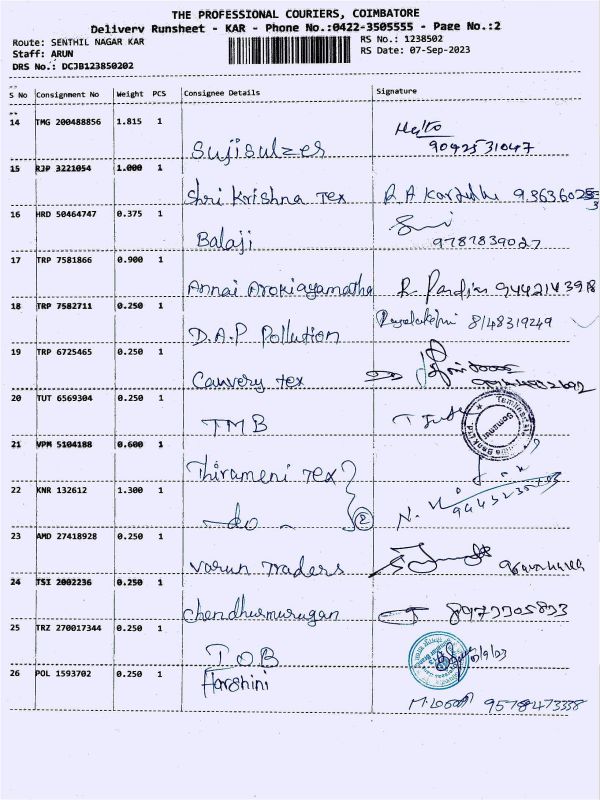 THE PROFESSIONAL COURIERS, COIMBATORE
Delivery Runsheet - KAR - Phone No.:0422-3505555 - Page No.:2
Route: SENTHIL NAGAR KAR
RS No.: 1238502
Staff: ARUN
RS Date: 07-Sep-2023
DRS No.: DCJB123850202
S No Consignment No Weight PCS Consignee Details Signature
14 TMG 200488856 1.815 1
Sujisulzes 9042531047
15 RJP 3221054 1.000 1
Shri Krishna Tex
16 HRD 50464747 0.375 1
Balaji 9787839027
17 TRP 7581866 0.900 1
Annai Arokiyamatha R. Pandian 9442143918
18 TRP 7582711 0.250 1
D.A.P Pollution 8148319249
19 TRP 6725465 0.250 1
Cauvery Tex
20 TUT 6569304 0.250 1
TMB
21 VPM 5104188 0.600 1
Thirameni Tex
22 KNR 132612 1.300 1
-do- 2
23 AMD 27418928 0.250 1
Varun Traders
24 TSI 2002236 0.250 1
Chendhurmurugan
25 TRZ 270017344 0.250 1
I.O.B
26 POL 1593702 0.250 1
Harshini
9578473338